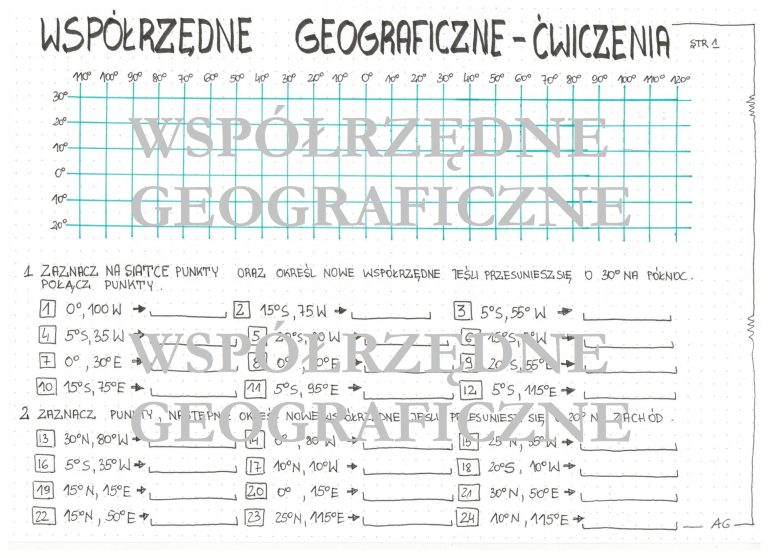 WSPÓŁRZĘDNE GEOGRAFICZNE - ĆWICZENIA STR 1
110° 100° 90° 80° 70° 60° 50° 40° 30° 20° 10° 0° 10° 20° 30° 40° 50° 60° 70° 80° 90° 100° 110° 120°
30°
20°
WSPÓŁRZĘDNE
10°
0°
10°
GEOGRAFICZNE
20°
1. ZAZNACZ NA SIATCE PUNKTY ORAZ OKREŚL NOWE WSPÓŁRZĘDNE JEŚLI PRZESUNIESZ SIĘ O 30° NA PÓŁNOC.
POŁĄCZ PUNKTY.
1 0°, 100W → 2 15°S, 75W → 3 5°S, 55°W →
4 5°S, 35W → 5 W → 6 →
WSPÓŁRZĘDNE
7 0°, 30°E → 8 0°, → 9 →
10 15°S, 75°E → 11 5°S, 95°E → 12 5°S, 115°E →
2. ZAZNACZ PUNKTY, NASTĘPNIE OKREŚL NOWE WSPÓŁRZĘDNE JEŚLI PRZESUNIESZ SIĘ 20° NA ZACHÓD.
GEOGRAFICZNE
13 30°N, 80°W → 14 0°, 80W → 15 →
16 5°S, 35°W → 17 10°N, 10°W → 18 20°S, 10°W →
19 15°N, 15°E → 20 0°, 15°E → 21 30°N, 50°E →
22 15°N, 50°E → 23 25°N, 115°E → 24 10°N, 115°E → AG